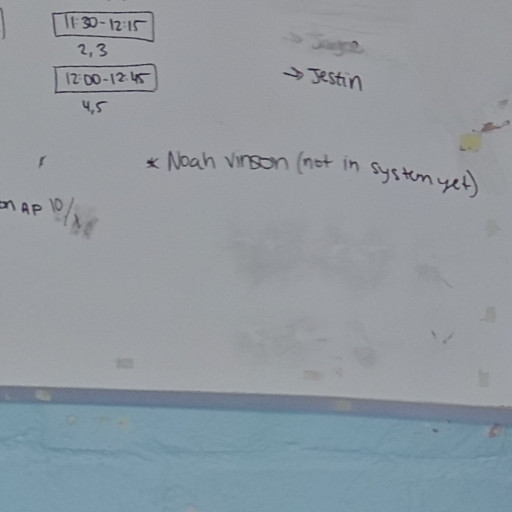 11:30-12:15
2,3
12:00-12:45
→ Jestin
4,5
* Noah Vinson (not in system yet)
on AP 10/